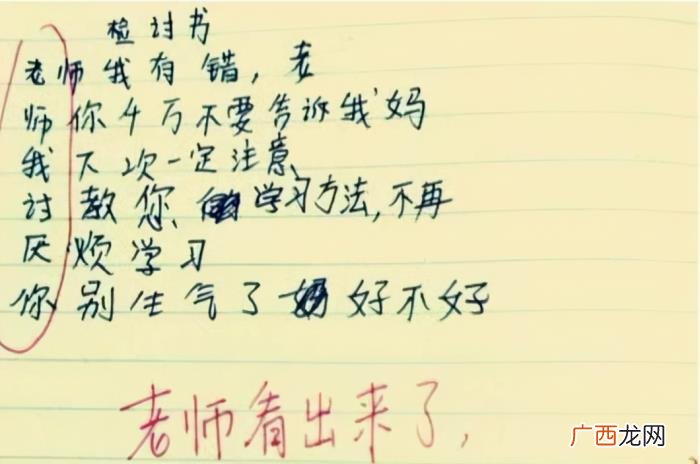 检讨书
老师我有错，老
师你千万不要告诉我妈
我下次一定注意、
讨教您、学习方法，不再
厌烦学习
你别生气了 好不好
老师看出来了，
广西龙网